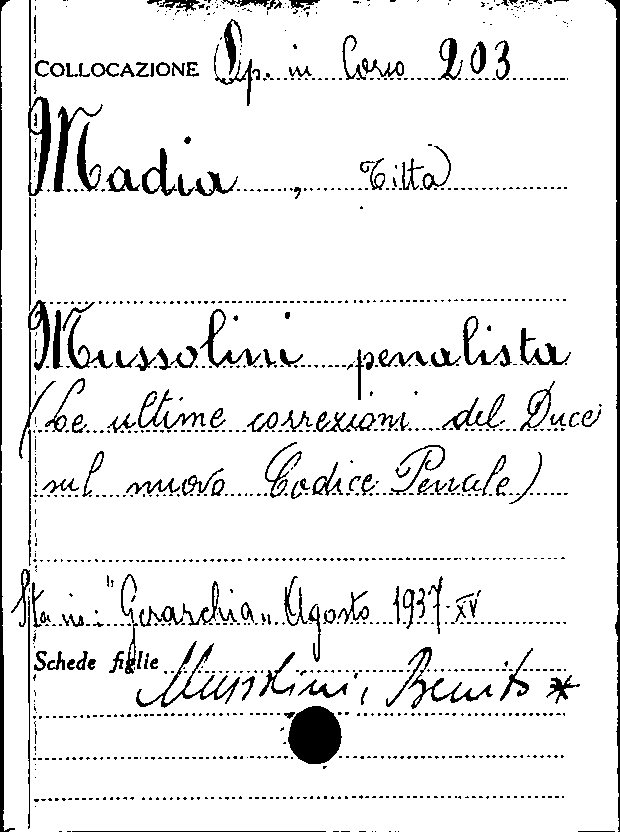 COLLOCAZIONE Op. in Corso 203
Madia, Titta
Mussolini penalista
(Le ultime correzioni del Duce
sul nuovo Codice Penale)
Sta in: "Gerarchia" Agosto 1937-XV
Schede figlie
Mussolini, Benito *